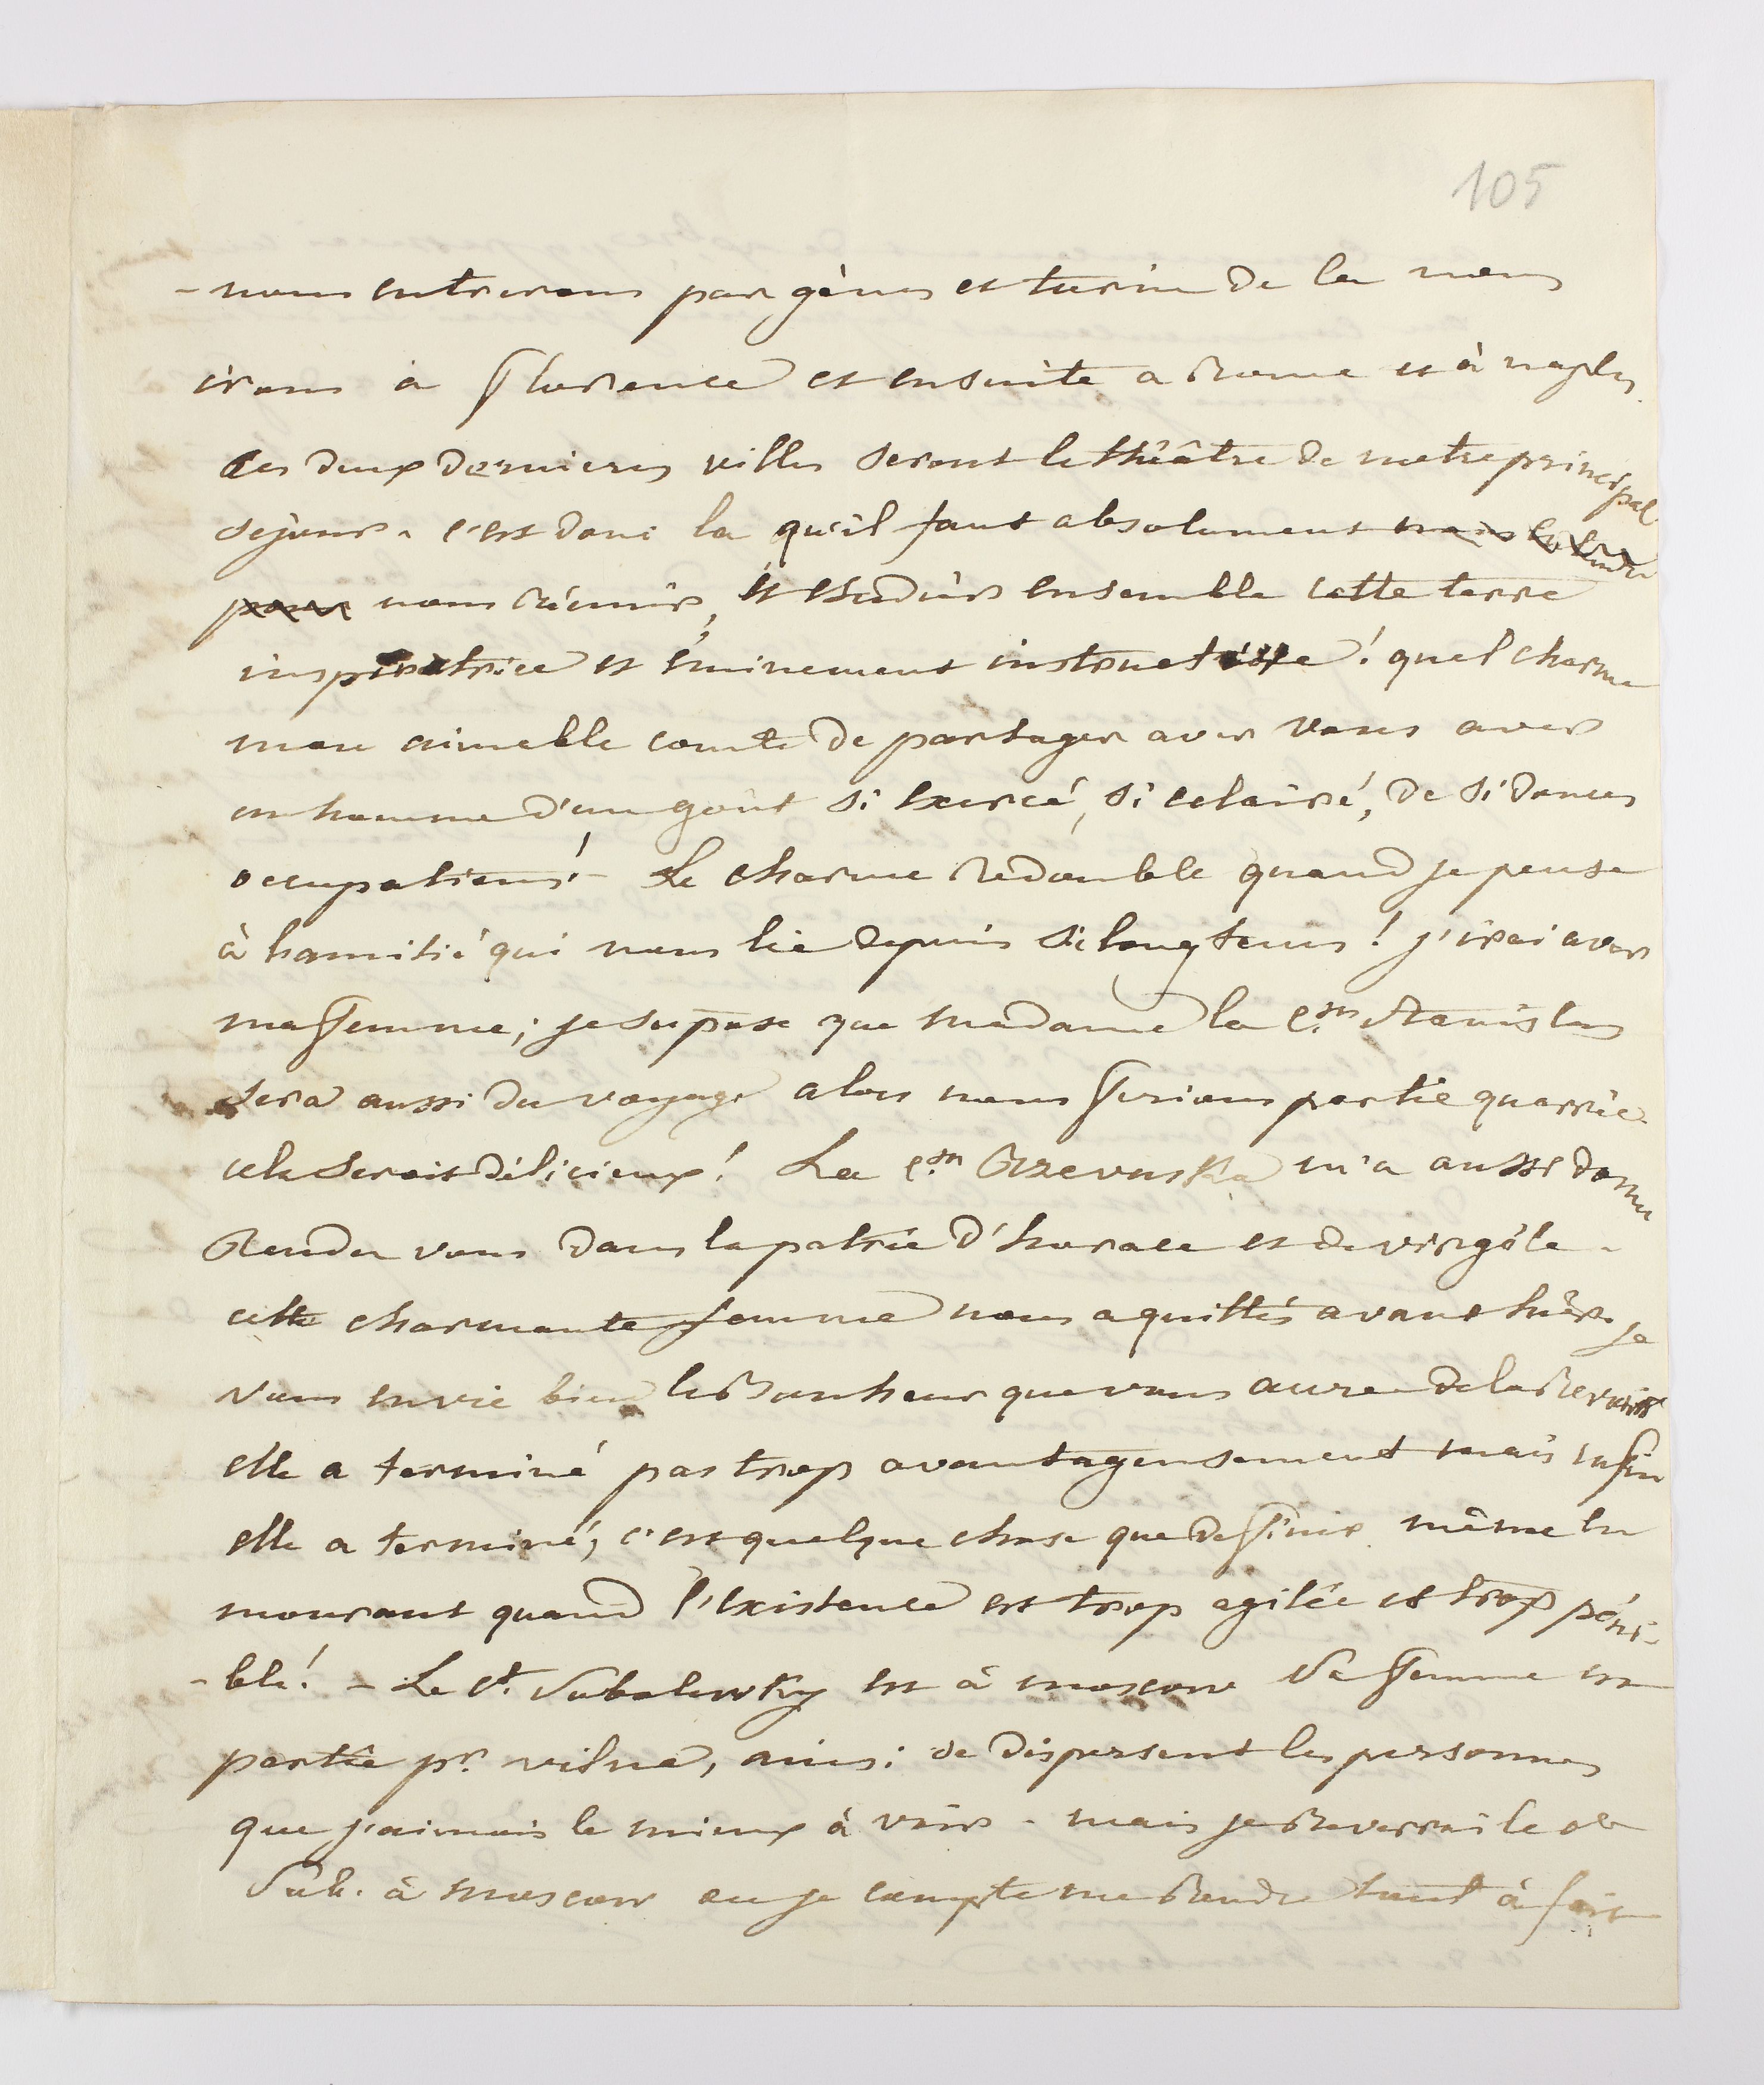 105
- nous entrerons par gènes et turin de la nous
irons a Florence et ensuite a Rome et à naples.
Ces deux dernieres villes seront le théâtre de notre principal
sejour. c'est donc la qu'il faut absolument
pour nous réunir, et etudier ensemble cette terre
inspiratrice et éminement instructive! quel charme
mon aimable comte de partager avec vous avec
un homme d'un goût si exercé, si eclairé, de si douces
occupations! - Le charme redouble quand je pense
à l'amitié qui nous lie depuis si longtems! j'irai avec
ma femme; je supose que madame la Csse Stanislas
sera aussi du voyage alors nous ferions partie quarrée
cela serait délicieux! La Csse Rzevuska m'a aussi donné
Rendez vous dans la patrie d'horace et de virgile.
cette charmante femme nous a quittés avant hier. je
vous envie bien le Bonheur que vous aurez de la Revoir
elle a terminé pas trop avantageusement mais enfin
elle a terminé, c'est quelque chose que de finir même en
mourant quand l'existence est trop agitée et trop péni-
-ble! - Le Ct. Sobolewsky est à moscow Sa femme est
partie pr. vilna, ainsi se dispersent les personnes
que j'aimais le mieux à voir. mais je Reverrai le ct
Sob. à moscow ou je compte me Rendre tout à fait